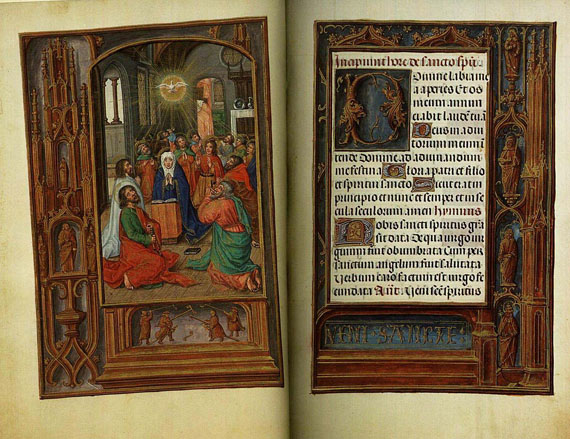 Incipiunt hore de sancto spū.
Domine labia me
a aperies Et os
meum annun
ciabit laudē tuā
Deus in adiu
torium meum in
tende Domine ad adiuvandum
me festina Gloria patri et filio
et spiritui sancto Sicut erat in
principio et nunc et semper et in se
cula seculorum amen hymnus
Nobis sancti spiritus gra
sit data De qua virgo vir
ginum fuit obumbrata Cum per
sanctum angelum fuit salutata
Verbum caro factum est virgo fe
cundata Ant. Veni sāc̄te spiritus
VENI SANCTE